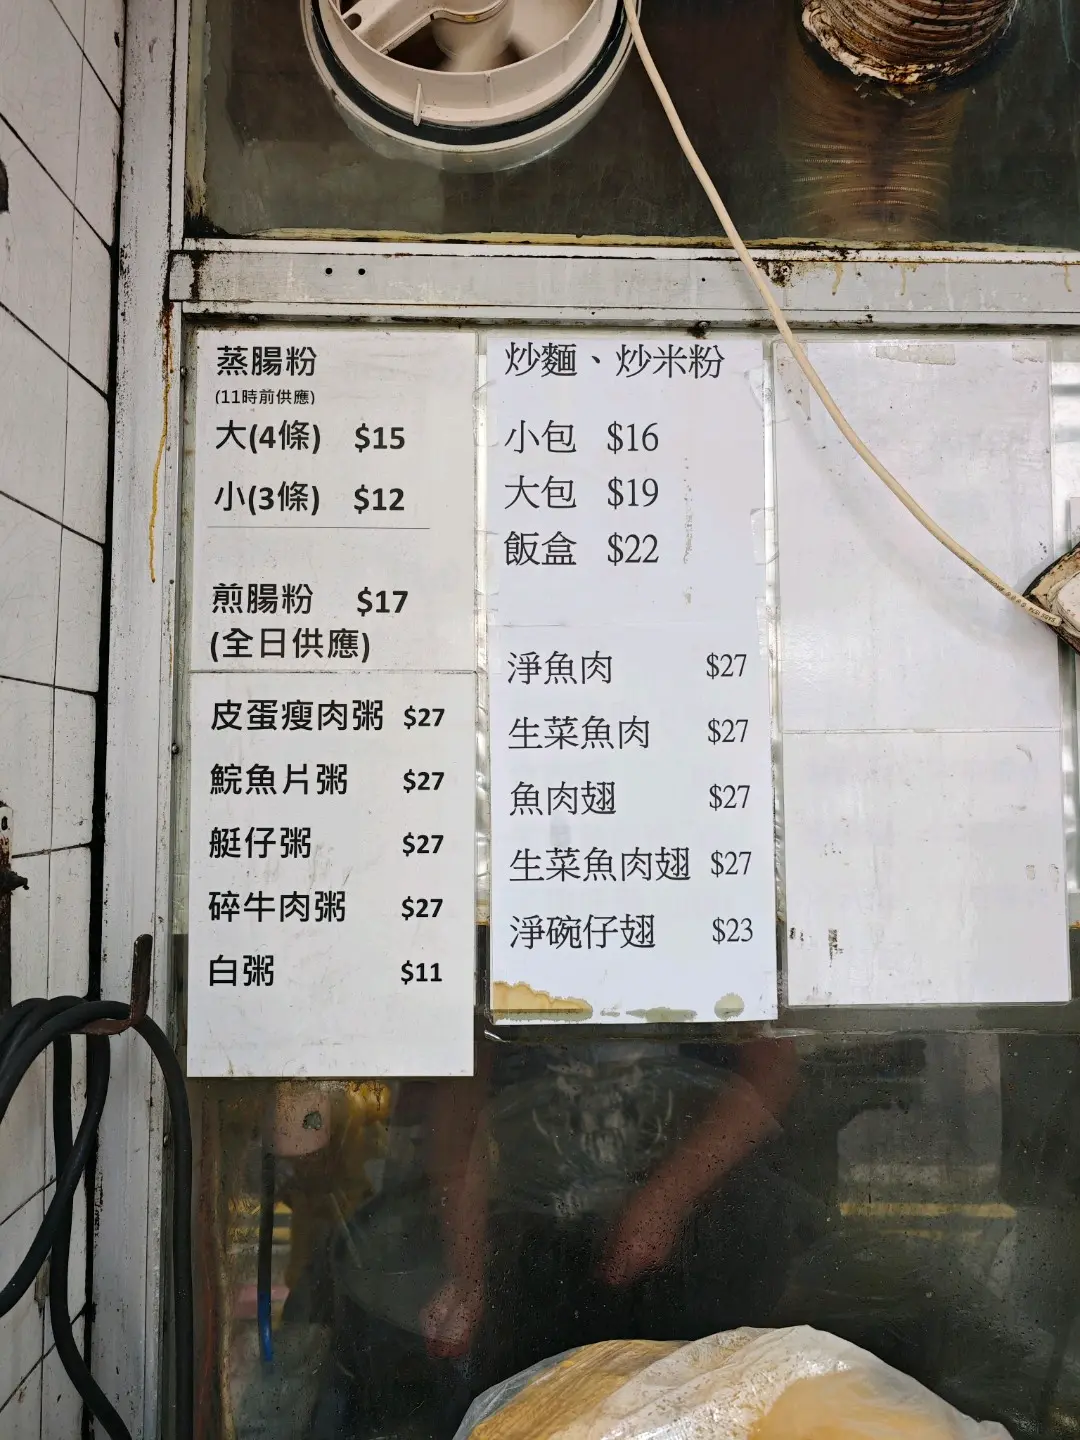 蒸腸粉
(11時前供應)
大(4條) $15
小(3條) $12
煎腸粉 $17
(全日供應)
皮蛋瘦肉粥 $27
鯇魚片粥 $27
艇仔粥 $27
碎牛肉粥 $27
白粥 $11
炒麵、炒米粉
小包 $16
大包 $19
飯盒 $22
淨魚肉 $27
生菜魚肉 $27
魚肉翅 $27
生菜魚肉翅 $27
淨碗仔翅 $23